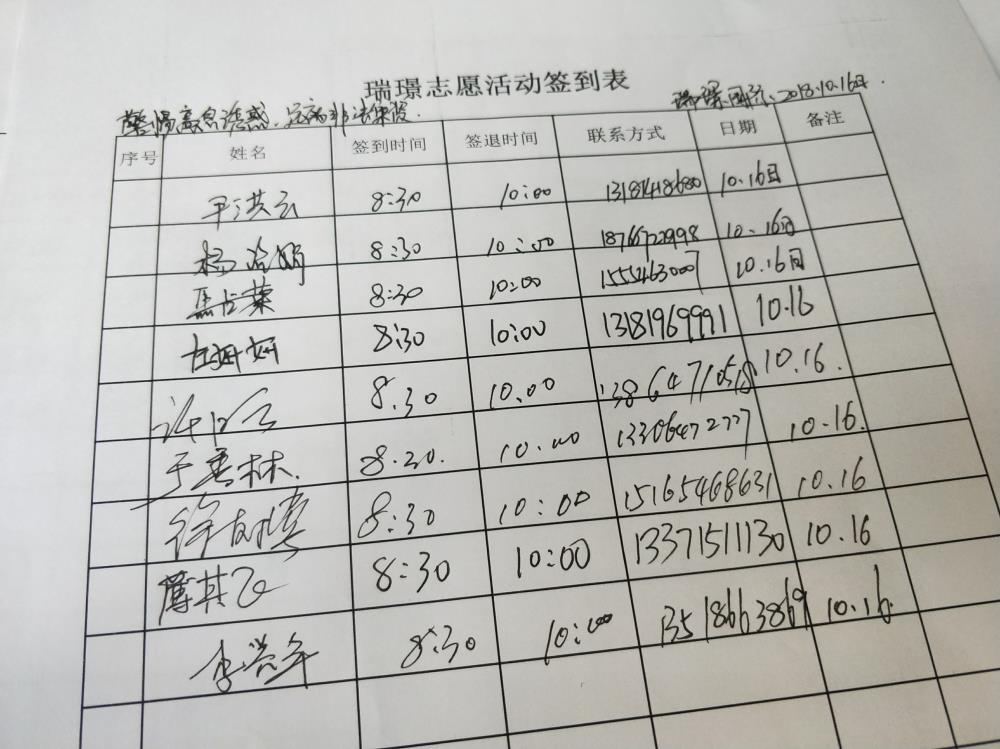 瑞璟志愿活动签到表
警惕高息诱惑、远离非法集资 瑞璟国际、2018.10.16日.
序号 姓名 签到时间 签退时间 联系方式 日期 备注
尹洪云 8:30 10:00 10.16日
杨 8:30 10:00 18766722998 10.16日
马占荣 8:30 10:00 15554630007 10.16日
8:30 10:00 13181969991 10.16
许 8.30 10.00 10.16.
于春林. 8.30. 10.00 13306472777 10.16.
徐 8:30 10:00 15165468631 10.16
薄其飞 8:30 10:00 13371511130 10.16
李党年 8:30 10:00 13518663869 10.16.